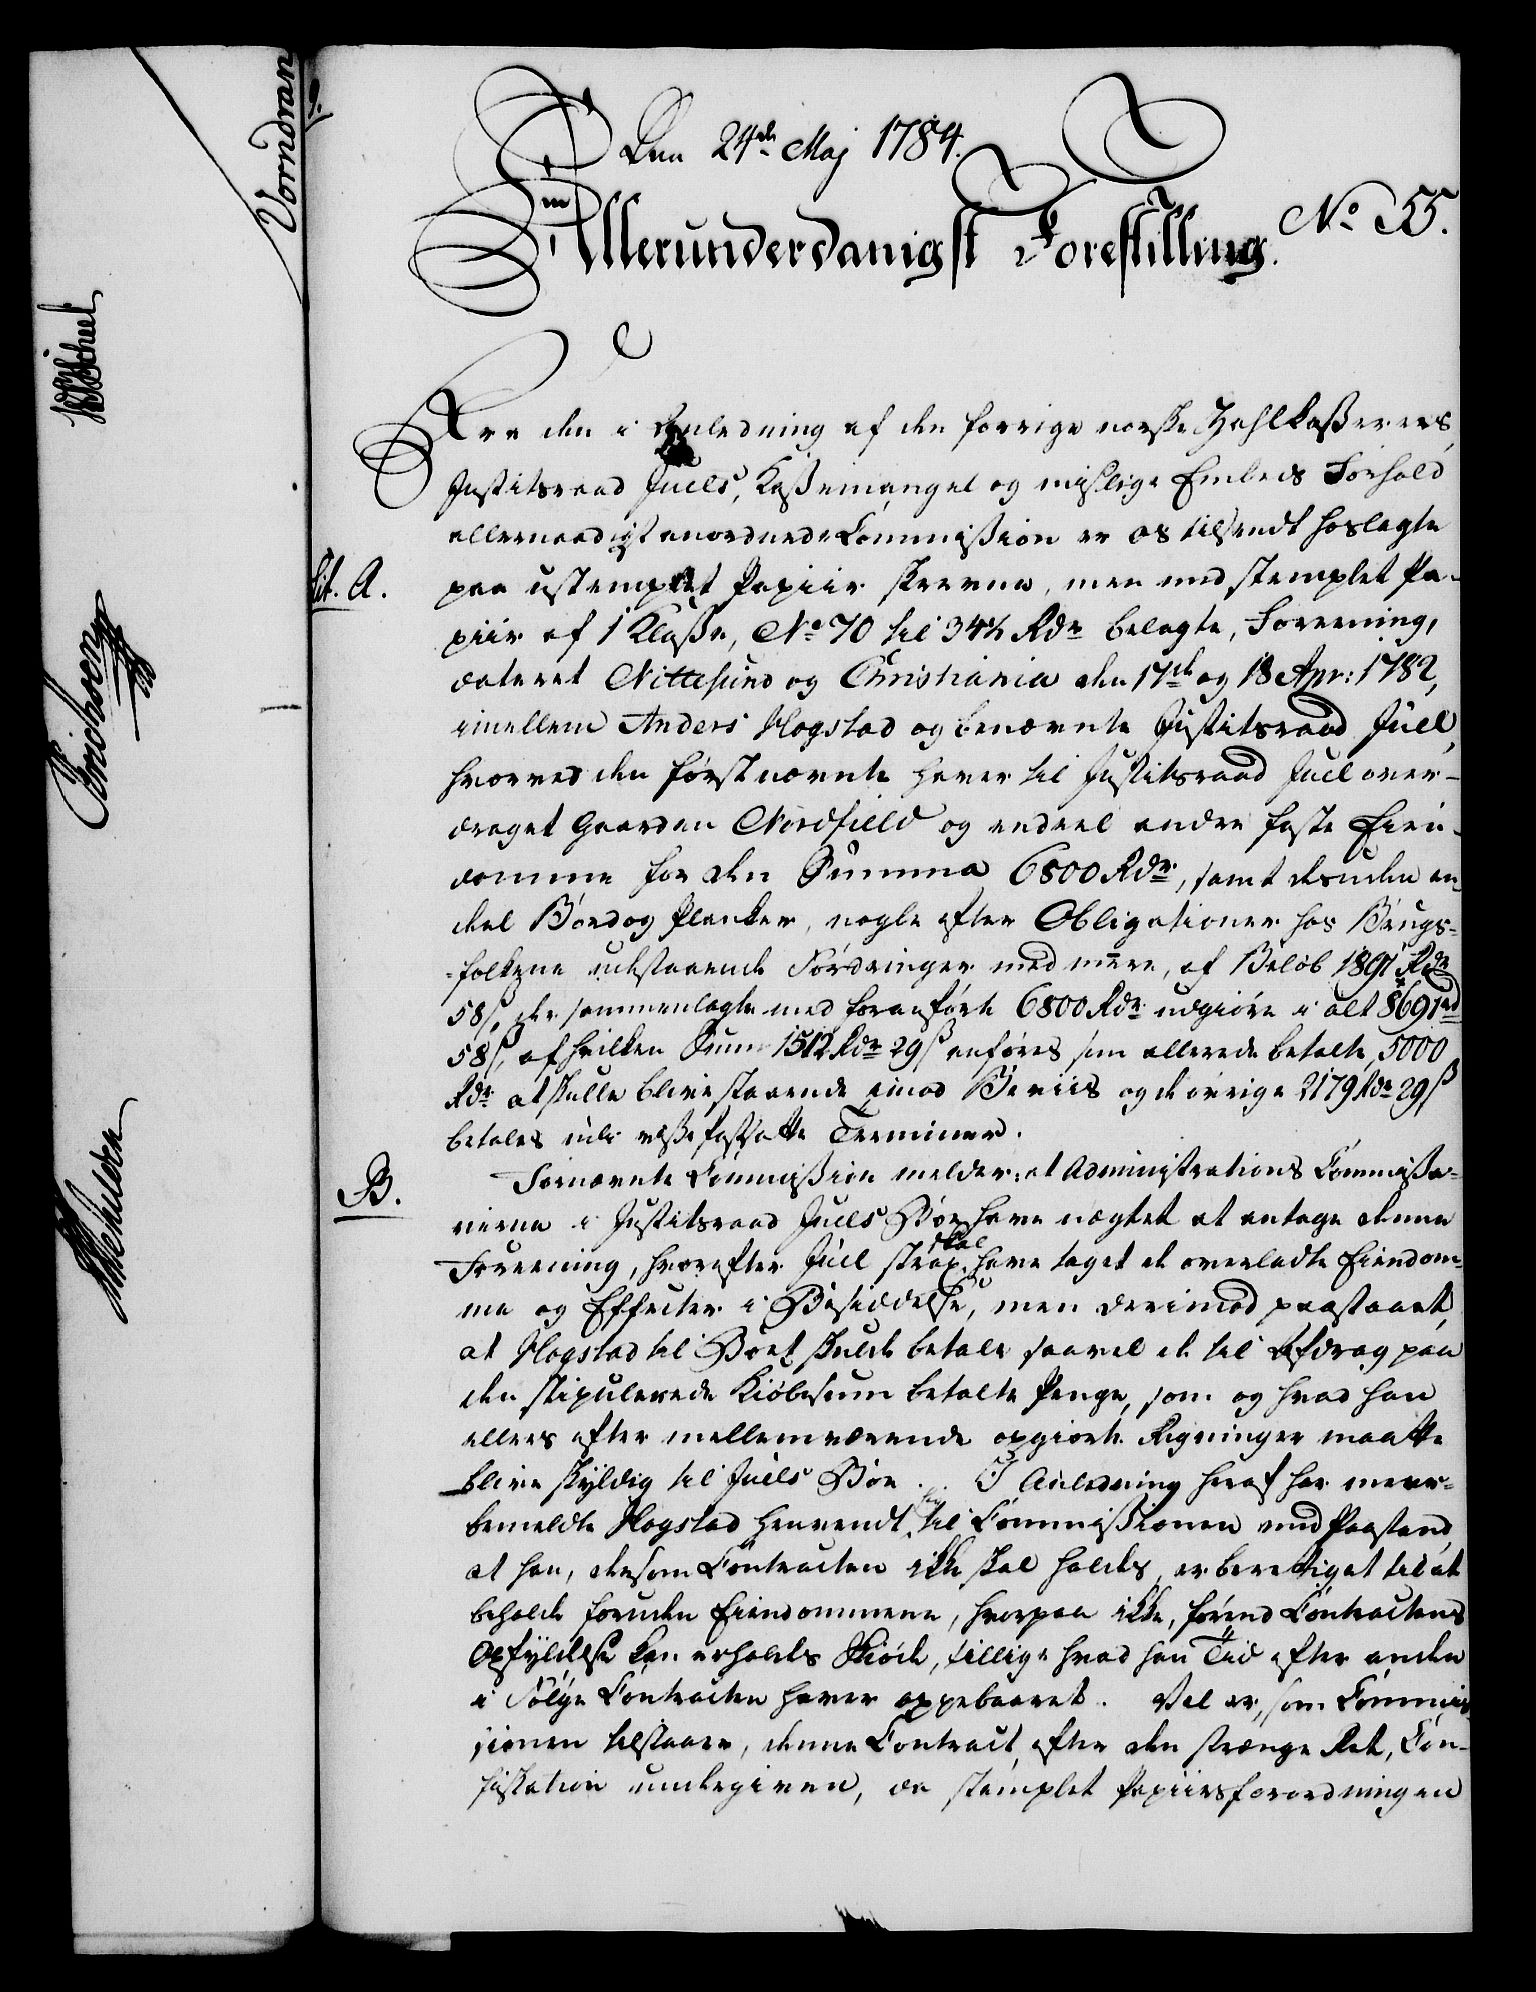 Den 24de Maj 1784.
No 55.
Allerunderdanigst Forestilling.
Fra den i Anledning af den forrige norske Zahlkasserers
Justitsraad Juels, Kassemangel og mislige Embeds Forhold
allernaadigst anordnede Commission er os tilsendt hoslagte
Lit. A.
paa ustemplet Papiir skrevne, men med stemplet Pa-
piir af 1 Klasse, No 70 til 34½ Rdr belagte, Foreening,
dateret Nittesund og Christiania den 17de og 18 Apr: 1782,
imellem Anders Hogstad og benævnte Justitsraad Juel,
hvorved den førstnævnte haver til Justitsraad Juel over-
draget Gaarden Nordfield og endeel andre faste Eien-
domme for den Summa 6800 Rdr, samt desuden en
deel Bord og Planker, nogle efter Obligationer hos Brugs-
-folkene udestaaende Fordringer med mere, af Beløb 1891 Rdr
58 s, der sammenlagte med foranførte 6800 Rdr udgiøre i alt 8691 rd
58 s, af hvilken Sum 1512 Rdr 29 s anføres som allerede betalte, 5000
Rdr at skulle blive staaende imod Beviis og de øvrige 2179 Rdr 29 s
betales udi visse fastsatte Terminer.
B.
Fornævnte Commission melder: at Administrations Commissa-
rierne i Justitsraad Juels Boe have nægtet at antage denne
Foreening, hvorefter Juel strax skal have taget de overladte Eiendom-
me og Effecter i Besiddelse, men derimod paastaaet,
at Hogstad til Boet skulde betale saavel de til Afdrag paa
den stipulerede Kiøbesum betalte Penge, som og hvad han
ellers efter mellemværende opgiorte Regninger maatte
blive skyldig til Juels Boe. I Anledning heraf har meer-
bemeldte Hogstad henvendt sig til Commissionen med Paastand
at han, dersom Contracten ikke skal holdes, er berettiget til at
beholde foruden Eiendommene, hvorpaa ikke, førend Contractens
Opfyldelse kan erholdes Skiøde, tillige hvad han Tid efter anden
i Følge Contracten haver oppebaaret. Vel er, som Commis-
sionen tilstaaer, denne Contract, efter den strænge Ret, Con-
fiskation undergiven, da stemplet Papiirsforordningen